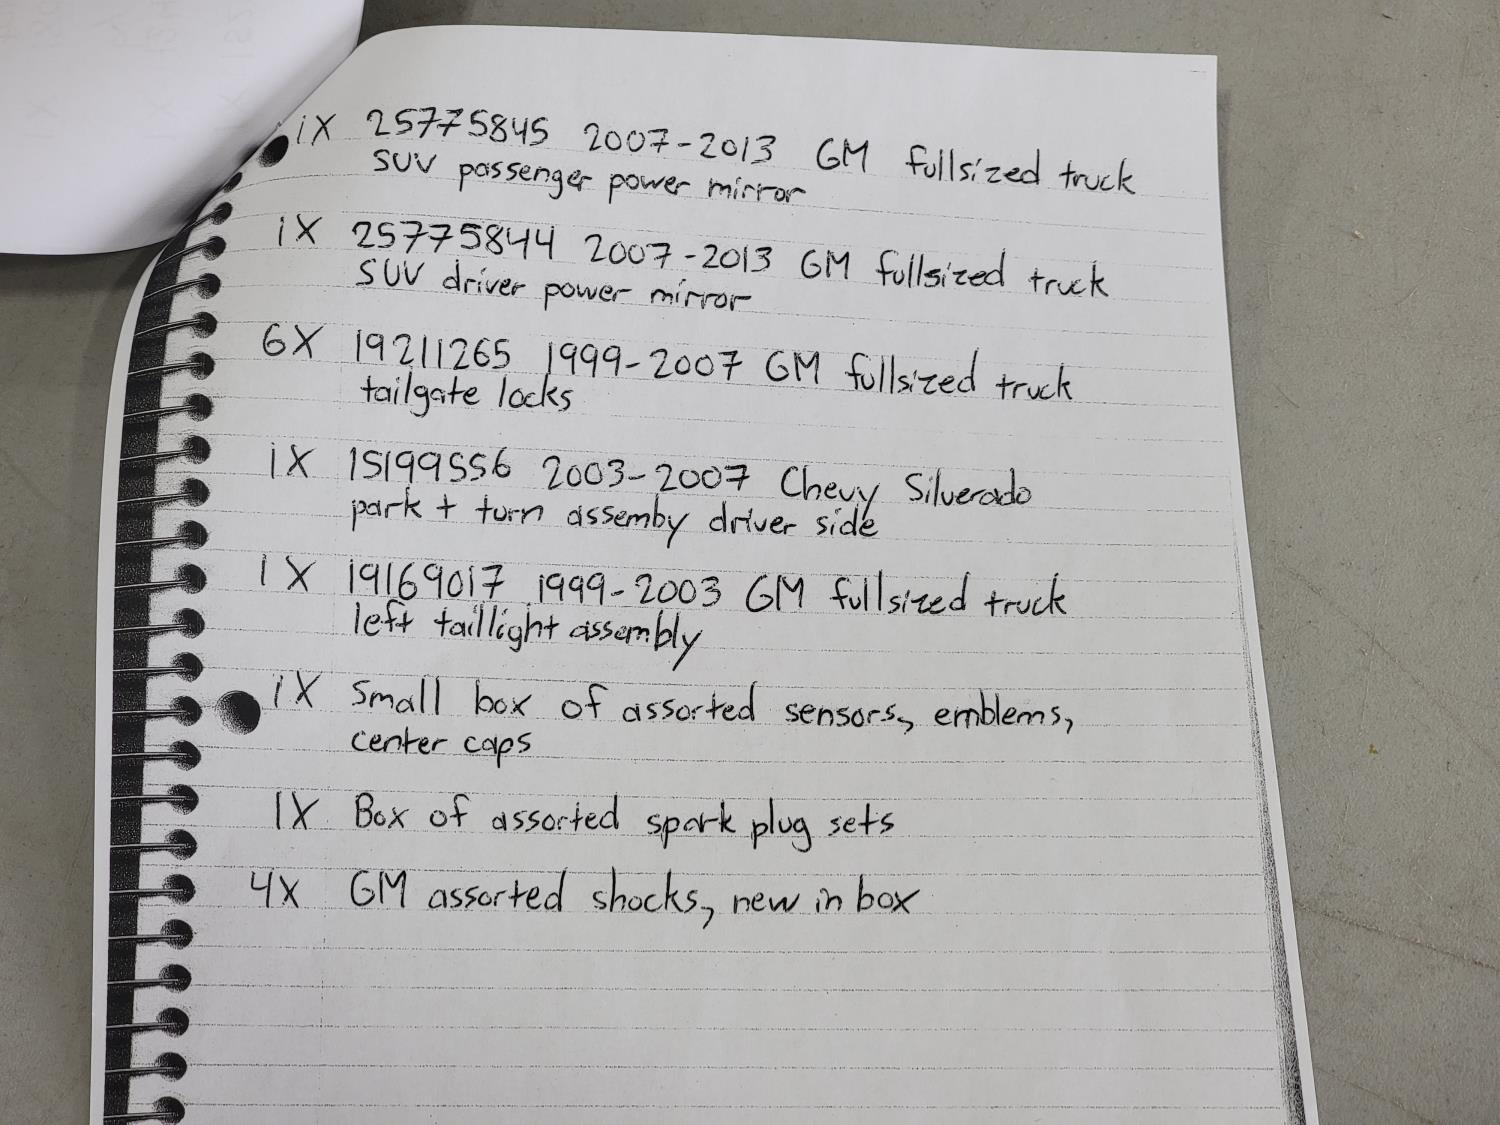 1X 25775845 2007-2013 GM fullsized truck
SUV passenger power mirror
1X 25775844 2007-2013 GM fullsized truck
SUV driver power mirror
6X 19211265 1999-2007 GM fullsized truck
tailgate locks
1X 15199556 2003-2007 Chevy Silverado
park + turn assemby driver side
1X 19169017 1999-2003 GM fullsized truck
left taillight assembly
1X Small box of assorted sensors, emblems,
center caps
1X Box of assorted spark plug sets
4X GM assorted shocks, new in box